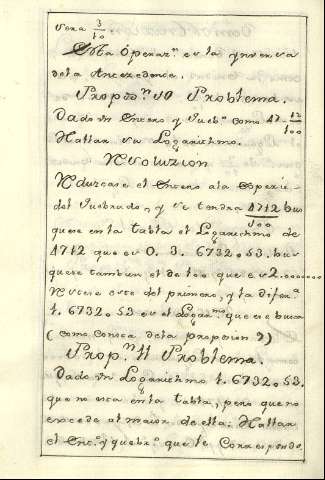 sera 3/10
Esta Operaz.n es la ynversa
dela Antezedente.
Propos.n 10 Problema.
Dado vn Entero y Queb.o como 47 12/100
Hallar su Logarithmo.
Resoluzion
Reduzcase el Entero ala espezie
del Quebrado, y se tendra 4712/100 bus
quese en la tabla el Logarithmo de
4712 que es 0. 3. 6732053. bus
quese tambien el de 100 que es 2.0000000
Restese este del primero, y la difer.a
1. 6732053 es el Logar.mo que se busca
(como consta dela proposion 9)
Prop.n 11 Problema.
Dado vn Logarithmo 1. 6732053.
que no esta en la tabla, pero que no
excede al maior de ella: Hallar
el Ent.o y quebr.o que le Corresponde.